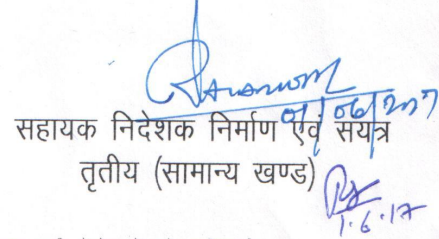 01/06/2017
सहायक निदेशक निर्माण एवं संयत्र
तृतीय (सामान्य खण्ड)
1.6.17